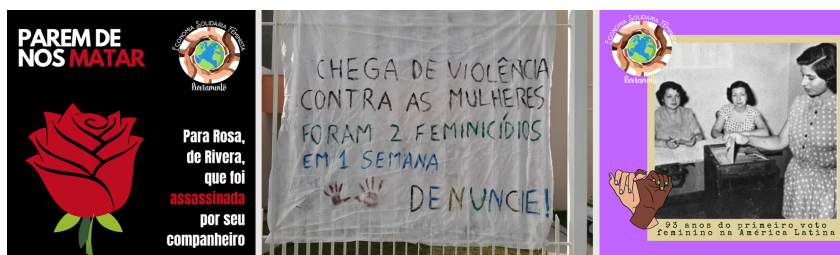 PAREM DE
NOS MATAR
ECONOMIA SOLIDÁRIA FEMINISTA
Riveramento
Para Rosa,
de Rivera,
que foi
assassinada
por seu
companheiro
CHEGA DE VIOLÊNCIA
CONTRA AS MULHERES
FORAM 2 FEMINICÍDIOS
EM 1 SEMANA
DENUNCIE!
ECONOMIA SOLIDÁRIA FEMINISTA
Riveramento
93 anos do primeiro voto
feminino na América Latina